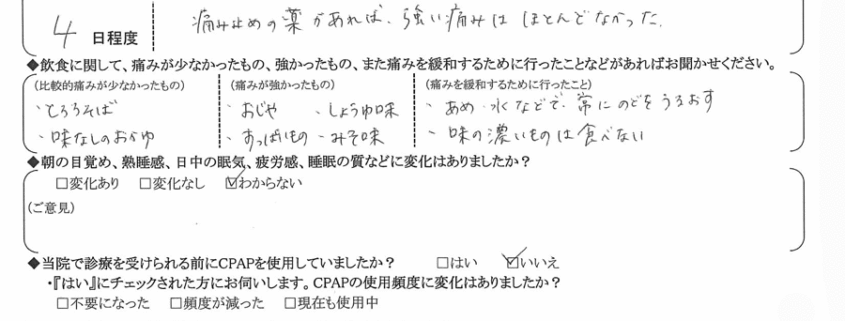 4 日程度 痛み止めの薬があれば、強い痛みは ほとんどなかった.
◆飲食に関して、痛みが少なかったもの、強かったもの、また痛みを緩和するために行ったことなどがあればお聞かせください。
(比較的痛みが少なかったもの) (痛みが強かったもの) (痛みを緩和するために行ったこと)
・とろろそば ・おじや ・しょうゆ味 ・あめ・水などで、常にのどをうるおす
・味なしのおかゆ ・すっぱいもの ・みそ味 ・味の濃いものは食べない
◆朝の目覚め、熟睡感、日中の眠気、疲労感、睡眠の質などに変化はありましたか?
□変化あり □変化なし ☑わからない
(ご意見)
◆当院で診療を受けられる前にCPAPを使用していましたか? □はい ☑いいえ
・『はい』にチェックされた方にお伺いします。CPAPの使用頻度に変化はありましたか?
□不要になった □頻度が減った □現在も使用中